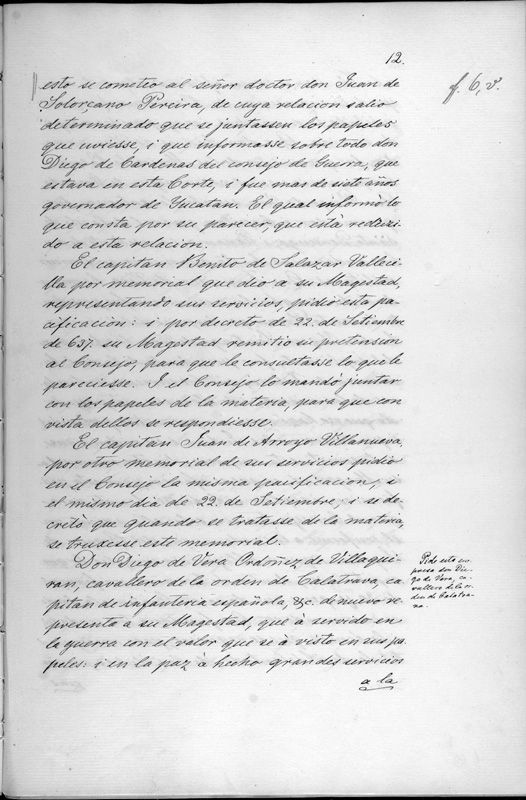 12.
f. 6, v.
esto se cometeo al señor doctor don Juan de
Solorçano Pereira, de cuya relacion salio
determinado que se juntassen los papeles
que uviesse, i que informasse sobre todo don
Diego de Cardenas del consejo de Guerra, que
estava en esta Corte, i fue mas de siete años
governador de Yucatan. El qual informò lo
que consta por su parecer, que està reduzi-
do a esta relacion.
El capitan Benito de Salazar Valleci-
lla por memorial que dio a su Magestad,
representando sus servicios, pidio esta pa-
cificacion: i por decreto de 22. de Setiembre
de 637. su Magestad remitio su pretension
al Consejo, para que le consultasse lo que le
pareciesse. I el Consejo lo mandò juntar
con los papeles de la materia, para que con
vista dellos se respondiesse.
El capitan Juan de Arroyo Villanueva,
por otro memorial de sus servicios pidio
en el Consejo la misma pacificacion, i
el mismo dia de 22. de Setiembre, i se de-
cretò que quando se tratasse de la materia,
se truxesse este memorial.
Don Diego de Vera Ordoñez de Villaqui-
ran, cavallero de la orden de Calatrava, ca-
pitan de infanteria española, &c. de nuevo re-
presento a su Magestad, que à servido en
la guerra con el valor que se à visto en sus pa-
peles: i en la paz à hecho grandes servicios
a la
Pide esta em-
presa don Die-
go de Vera, ca-
vallero de la or-
den de Calatra-
va.